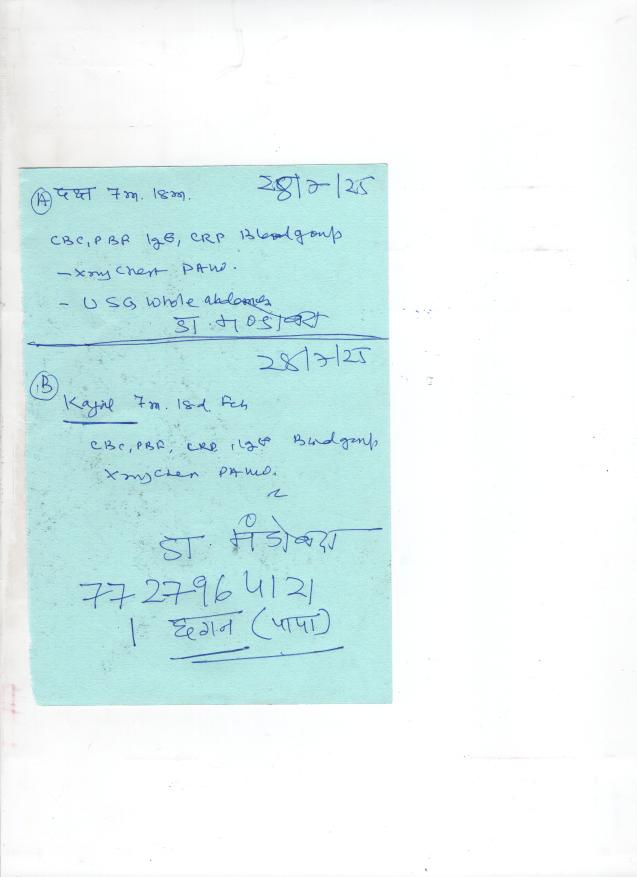 (A) दक्ष 7m. 18m. 28/7/25
CBC, PBF IgE, CRP Bloodgroup
– Xray Chest PAvo.
– USG Whole abdomen
डा. मंडोवरा
28/7/25
(B)
Kajal 7m. 18d. Fch
CBC, PBF, CRP, IgE Bloodgroup
Xray Chest PAvo.
डा. मंडोवरा
7727964121
छगन (पापा)